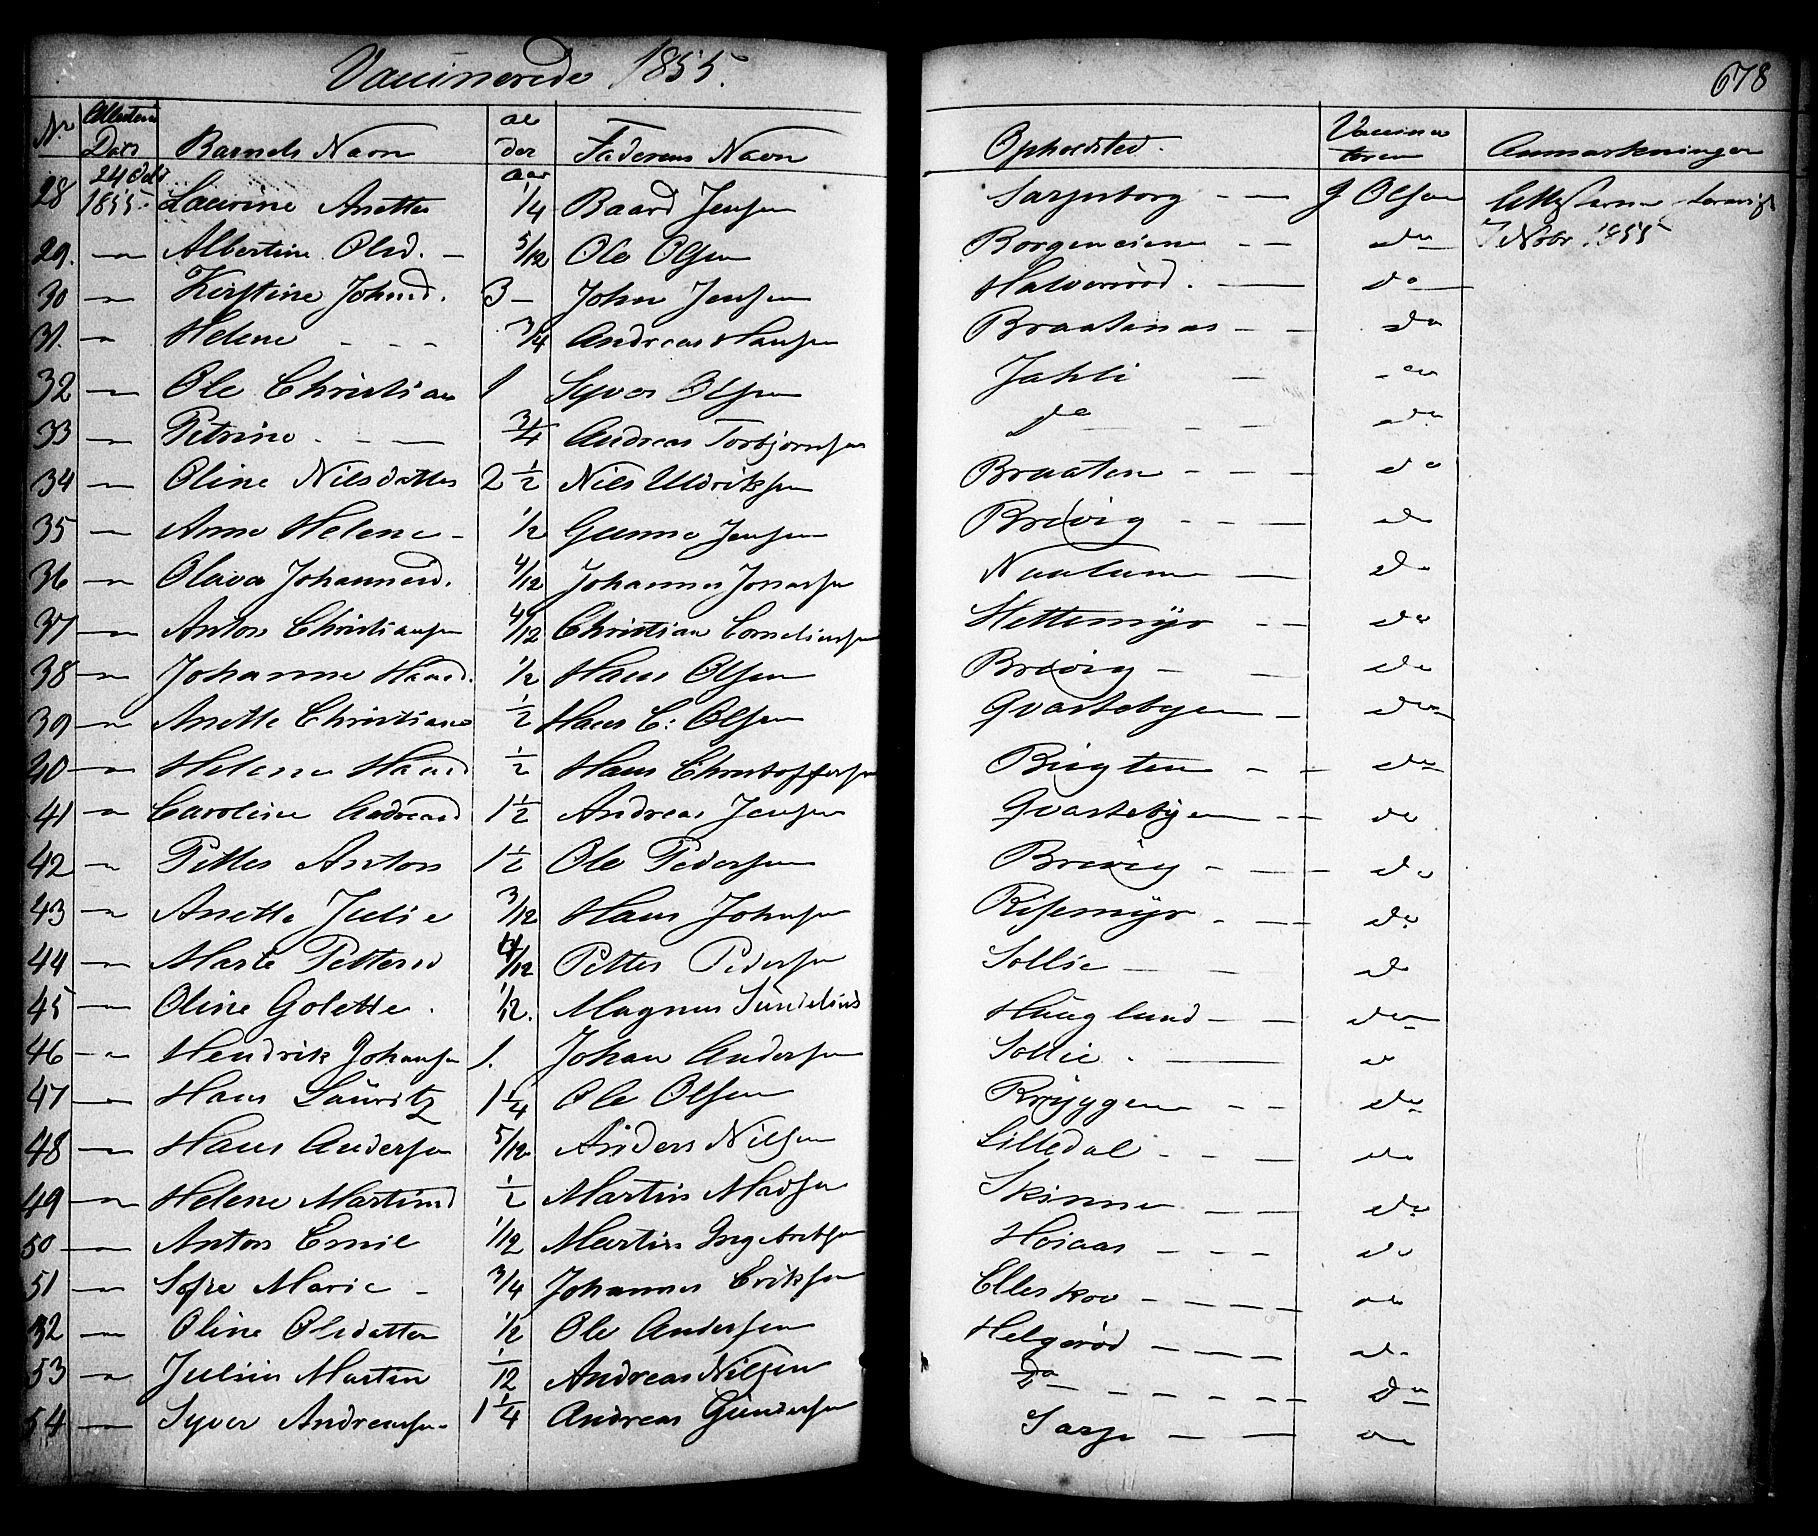 Vaccinerede 1855.
678
No Attestens Dato Barnets Navn Alder aar Faderens Navn Opholdsted. Vaccinatoren Anmærkninger
28 24 Octr 1855. Laurine Anette 1/4 Baard Jensen Sarpsborg - - J Olsen
29. -"- Albertine Olsd. - 5/12 Ole Olsen - - do 7 Nobr. 1855
30 -"- Kirstine Johnsd. 3 - John Jensen Halverrød. - do
31. -"- Helene - - - 3/4 Andreas Hansen Braatenas - - do
32 -"- Ole Christian 1 Syver Olsen Jahli - - do
33 -"- Petrine - - 3/4 Andreas Torbjørnsen do - - do
34 -"- Oline Nilsdatter 2 1/2 Niels Uldriksen Braaten - - - do
35 -"- Anne Helene - 1/2 Gunne Jensen Brevig - - - do
36 -"- Olava Johannesd. 4/12 Johannes Jonassen - - do
37 -"- Anton Christiansen 4/12 Christian Corneliussen Hettemyr - - do
38 -"- Johanne Hansd. 1/2 Hans Olsen Brevig - - do
39 -"- Anette Christiane 1/2 Hans C: Olsen Qvastebyen - do
40 -"- Helene Hansd 1/2 Hans Christoffersen - - do
41 -"- Caroline Andreasd 1 1/2 Andreas Jensen Qvastebyen - - do
42 -"- Petter Anton 1 1/2 Ole Pedersen Brevig - - - do
43 -"- Anette Julie 3/12 Hans Johnsen Risemyr - - do
44 -"- Marte Pettersd 4/12 Petter Pedersen Sollie - - do
45 -"- Oline Golette. 1/12. Magnus Sundelius Hauglund - - do
46 -"- Hendrik Johansen 1. Johan Andersen Sollie. - do
47 -"- Hans Lauritz 1 1/4 Ole Olsen Bryggen - - do
48 -"- Hans Andersen 5/12 Anders Nilsen Lilledal - - - do
49 -"- Helene Martinsd 1/2 Martin Madsen Skinne - - do
50 -"- Anton Emil 1/12 Martin Ingebretsen Hoiaas - - - do
51 -"- Sofie Marie - 3/4 Johannes Eriksen Elleskov - - - - do
52 -"- Oline Olsdatter 1/2 Ole Andersen Helgerød - - - - do
53 -"- Julius Martin 1/12 Andreas Nilsen do - - - - - - do
54 -"- Syver Andreassen 1 1/4 Andreas Gundersen Sarp - - do